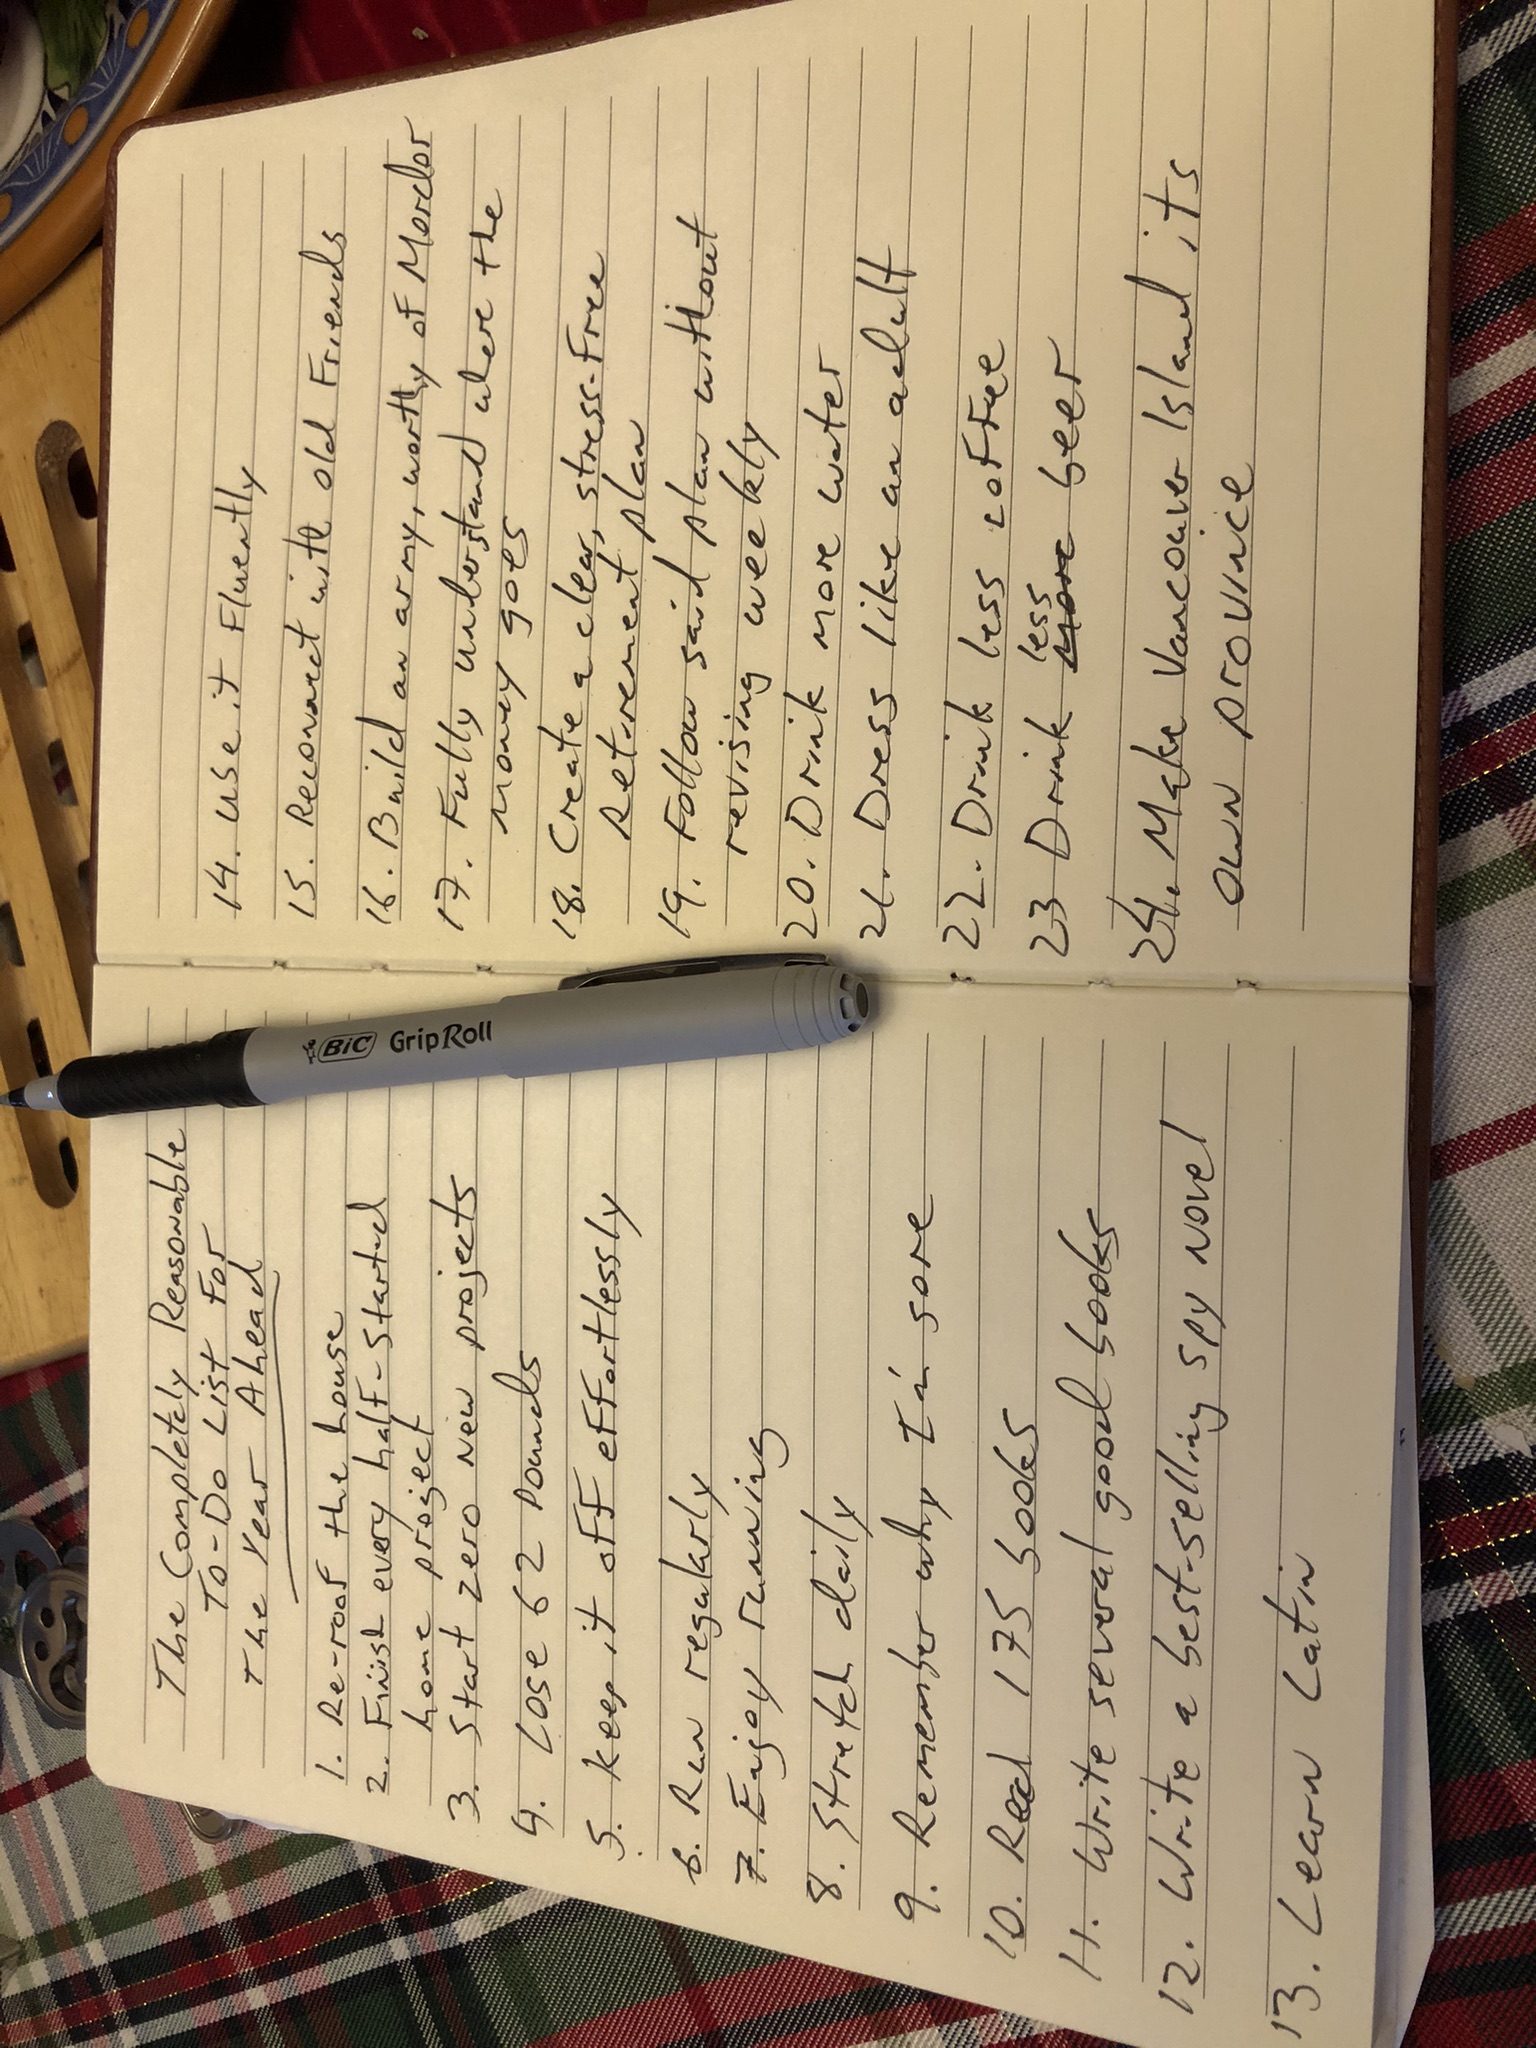 The Completely Reasonable
To-Do List For
The Year Ahead
1. Re-roof the house
2. Finish every half-started
home project
3. Start zero new projects
4. Lose 62 pounds
5. Keep it off effortlessly
6. Run regularly
7. Enjoy running
8. Stretch daily
9. Remember why I'm sore
10. Read 175 books
11. Write several good books
12. Write a best-selling spy novel
13. Learn Latin
BIC GripRoll
14. Use it Fluently
15. Reconnect with old Friends
16. Build an army, worthy of Mordor
17. Fully understand where the
money goes
18. Create a clear, stress-free
Retirement plan
19. Follow said plan without
revising weekly
20. Drink more water
21. Dress like an adult
22. Drink less coffee
less
23 Drink more beer
24. Make Vancouver Island its
own province